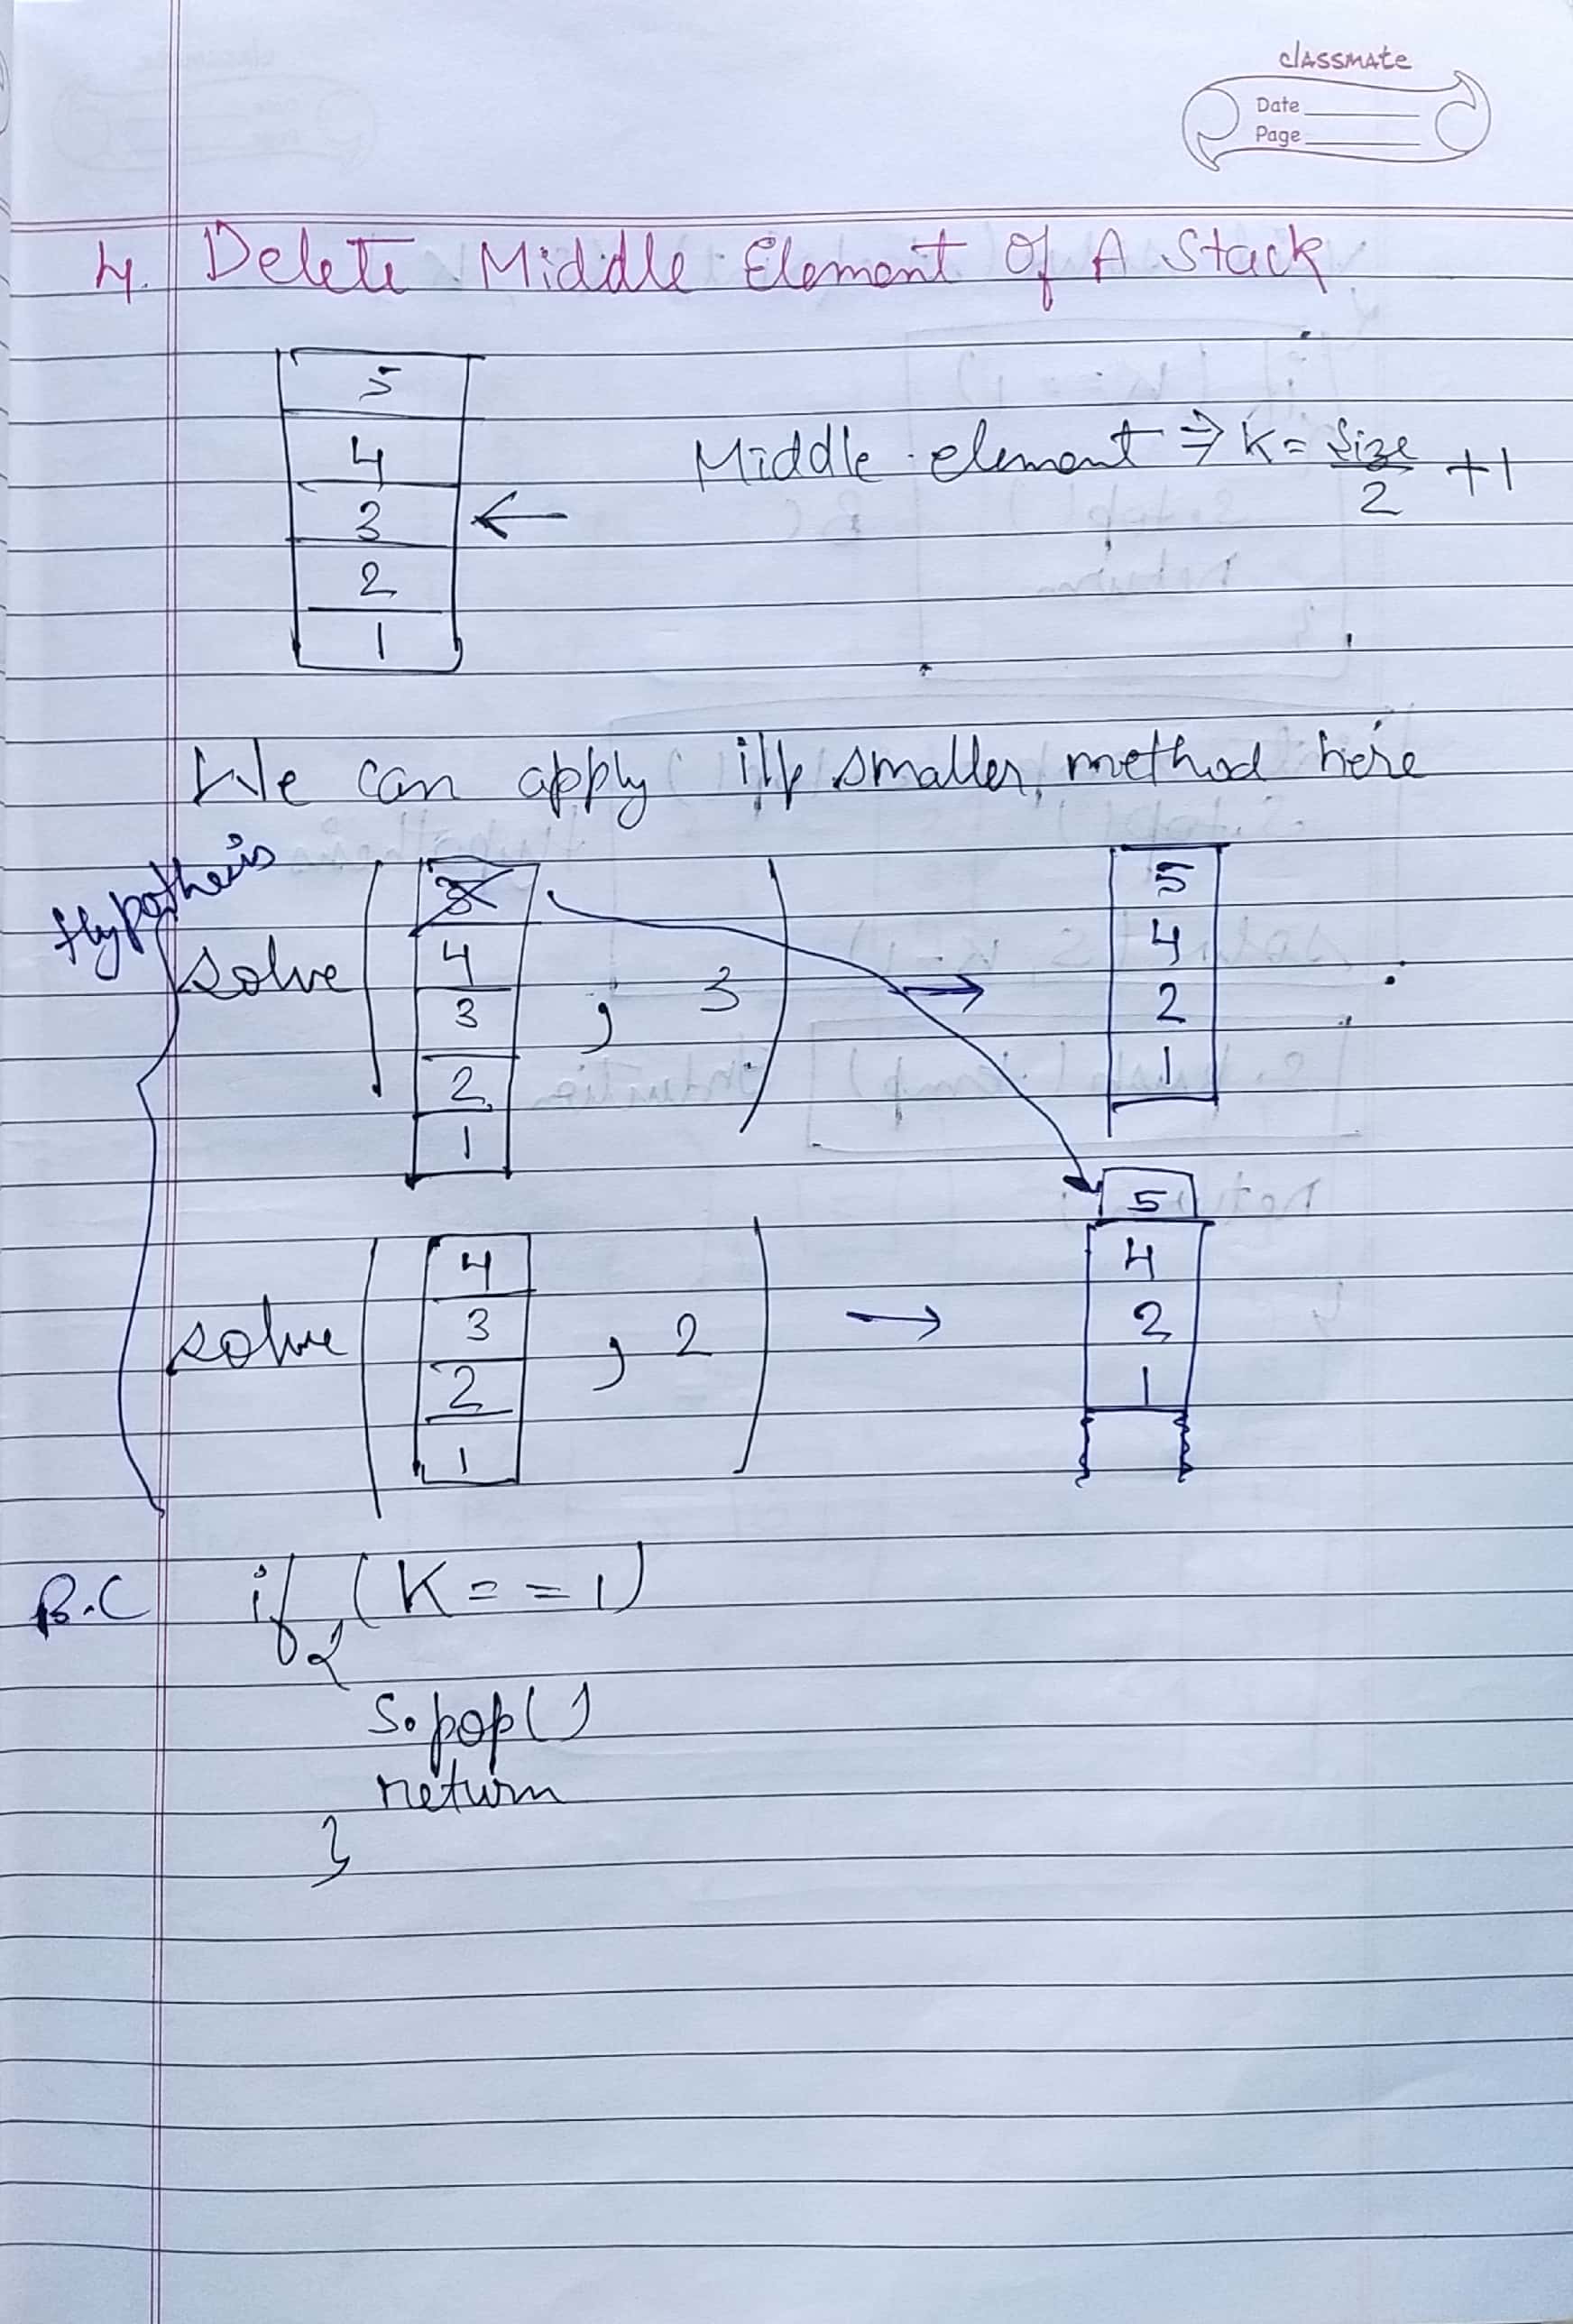 classmate
Date
Page
4. Delete Middle Element Of A Stack
5
4
3 ←
2
1
Middle element ⇒ K = Size/2 + 1
We can apply i/p smaller method here
Hypothesis
solve ( 4 3 2 1 , 3 ) → 5 4 2 1
solve ( 4 3 2 1 , 2 ) → 5 4 2 1
B.C if (K == 1)
{
S.pop()
return
}